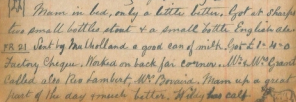 Mam in bed, only a little better. Got at Sharps
less small bottles stout & a small bottle English ale
FR 21. Sent by Mulholland a good can of milk. Got £1-4-0
Factory Cheque. Worked on back fai corner. Mr & Mrs Grant
Called also Rev Lambert, Mr Benaid. Mam up a great
part of the day & much better. Wiley has calf